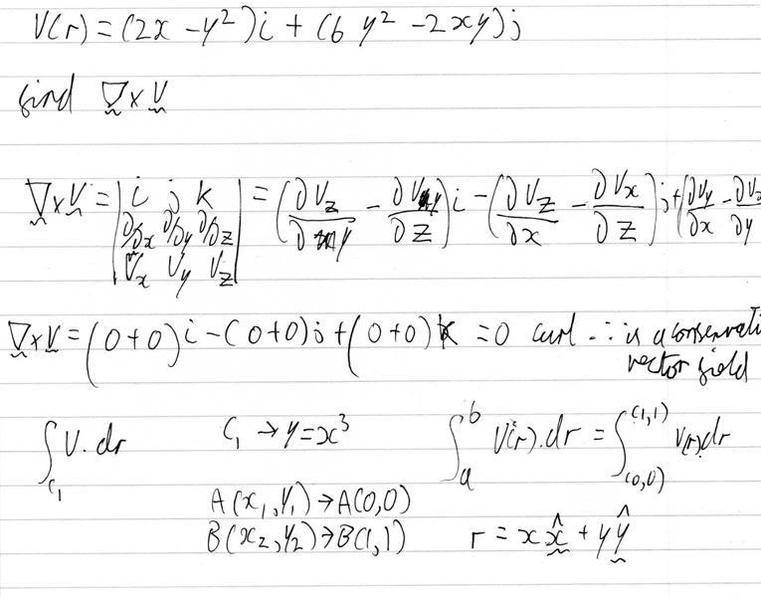 V(r) = (2x - y²)i + (6y² - 2xy)j
find ∇×V
∇×V = |i j k; ∂/∂x ∂/∂y ∂/∂z; Vx Vy Vz| = (∂Vz/∂y - ∂Vy/∂z)i - (∂Vz/∂x - ∂Vx/∂z)j + (∂Vy/∂x - ∂Vx/∂y
∇×V = (0+0)i - (0+0)j + (0+0)k = 0 curl ∴ is a conservati
vector field
∫_C₁ V·dr   C₁ → y = x³   ∫_a^b V(r)·dr = ∫_(0,0)^(1,1) V(r)·dr
A(x₁, y₁) → A(0,0)
B(x₂, y₂) → B(1,1)   r = x x̂ + y ŷ